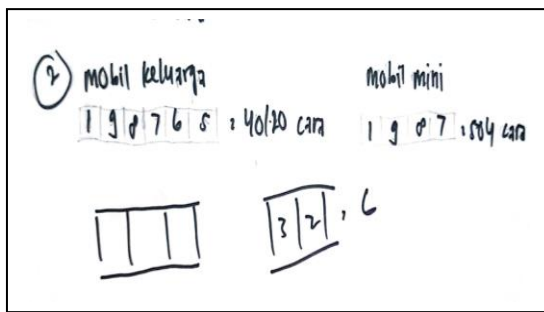 2 mobil keluarga
1 9 8 7 6 5 = 40120 cara
mobil mini
1 9 8 7 = 504 cara
3 2 = 6